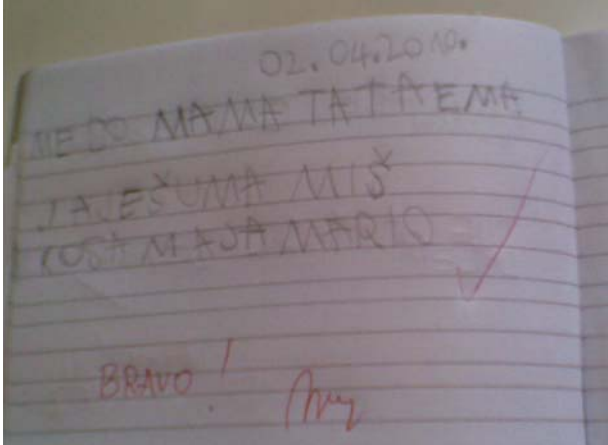 02.04.2010.
MEDO MAMA TATA EMA
JAJE ŠUMA MIŠ
KOSA MAJA MARIO
BRAVO!